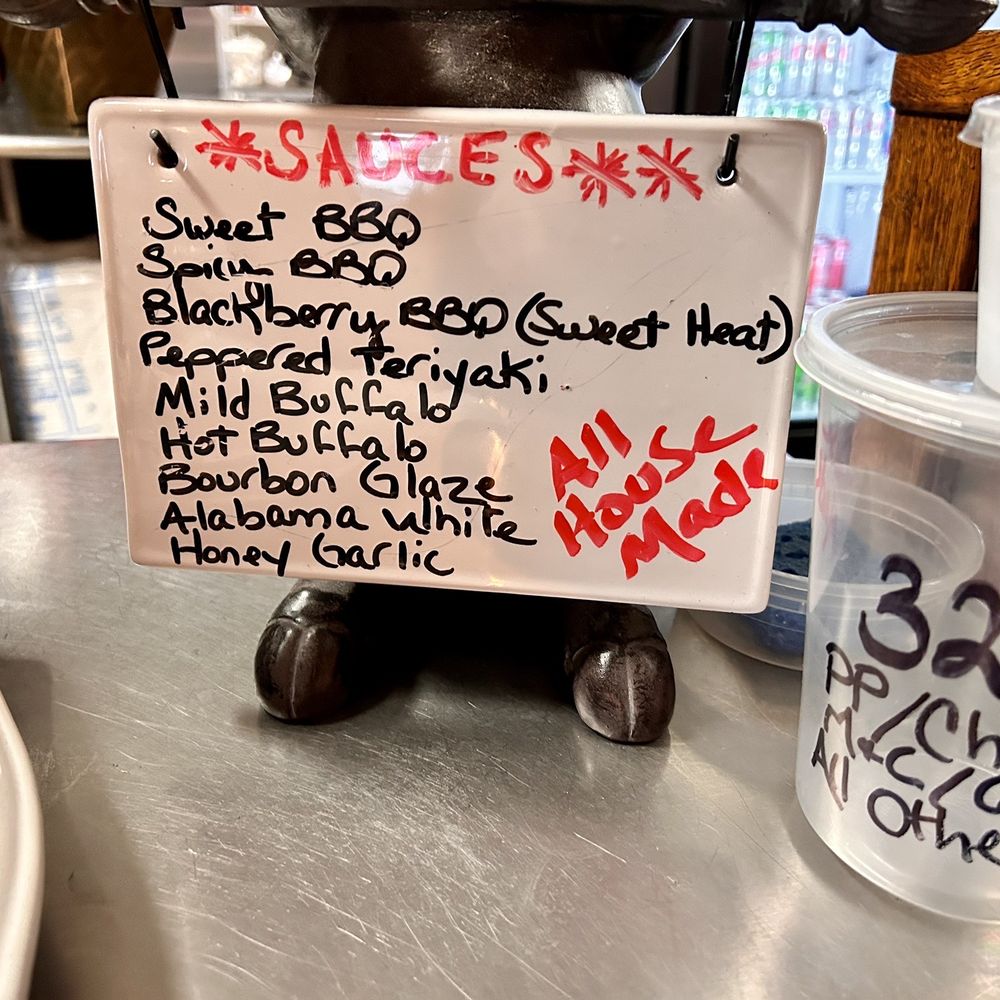 *SAUCES**
Sweet BBQ
Spicy BBQ
Blackberry BBQ (Sweet Heat)
Peppered Teriyaki
Mild Buffalo
Hot Buffalo
Bourbon Glaze
Alabama White
Honey Garlic
All
House
Made
32
PP/Ch
M+C/
All
Othe